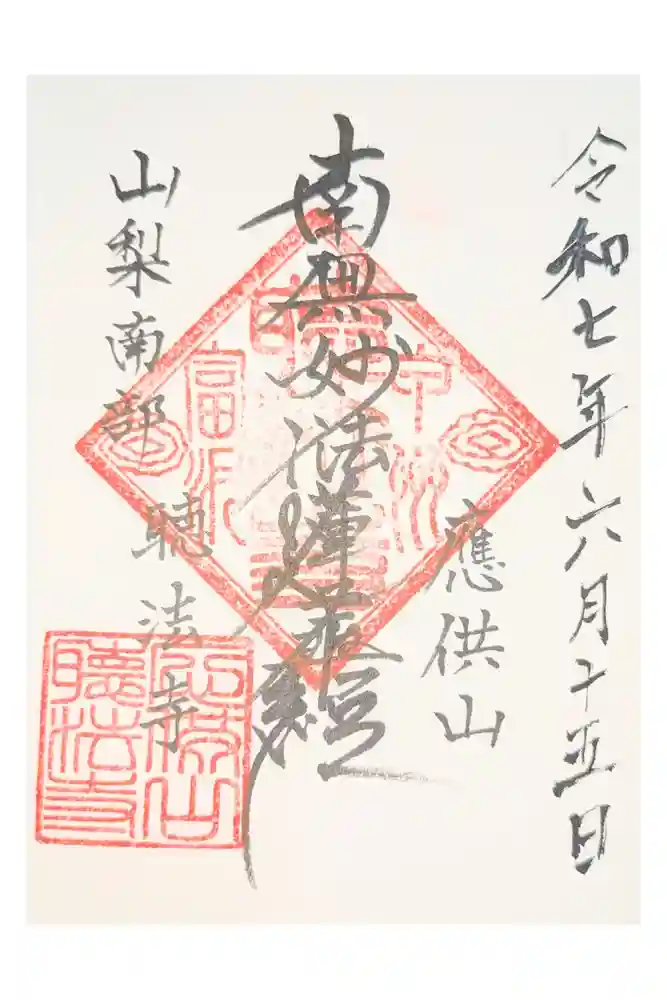 令和七年六月十五日
應供山
南無妙法蓮華経
山梨南部
聴法寺
應供山
聽法寺